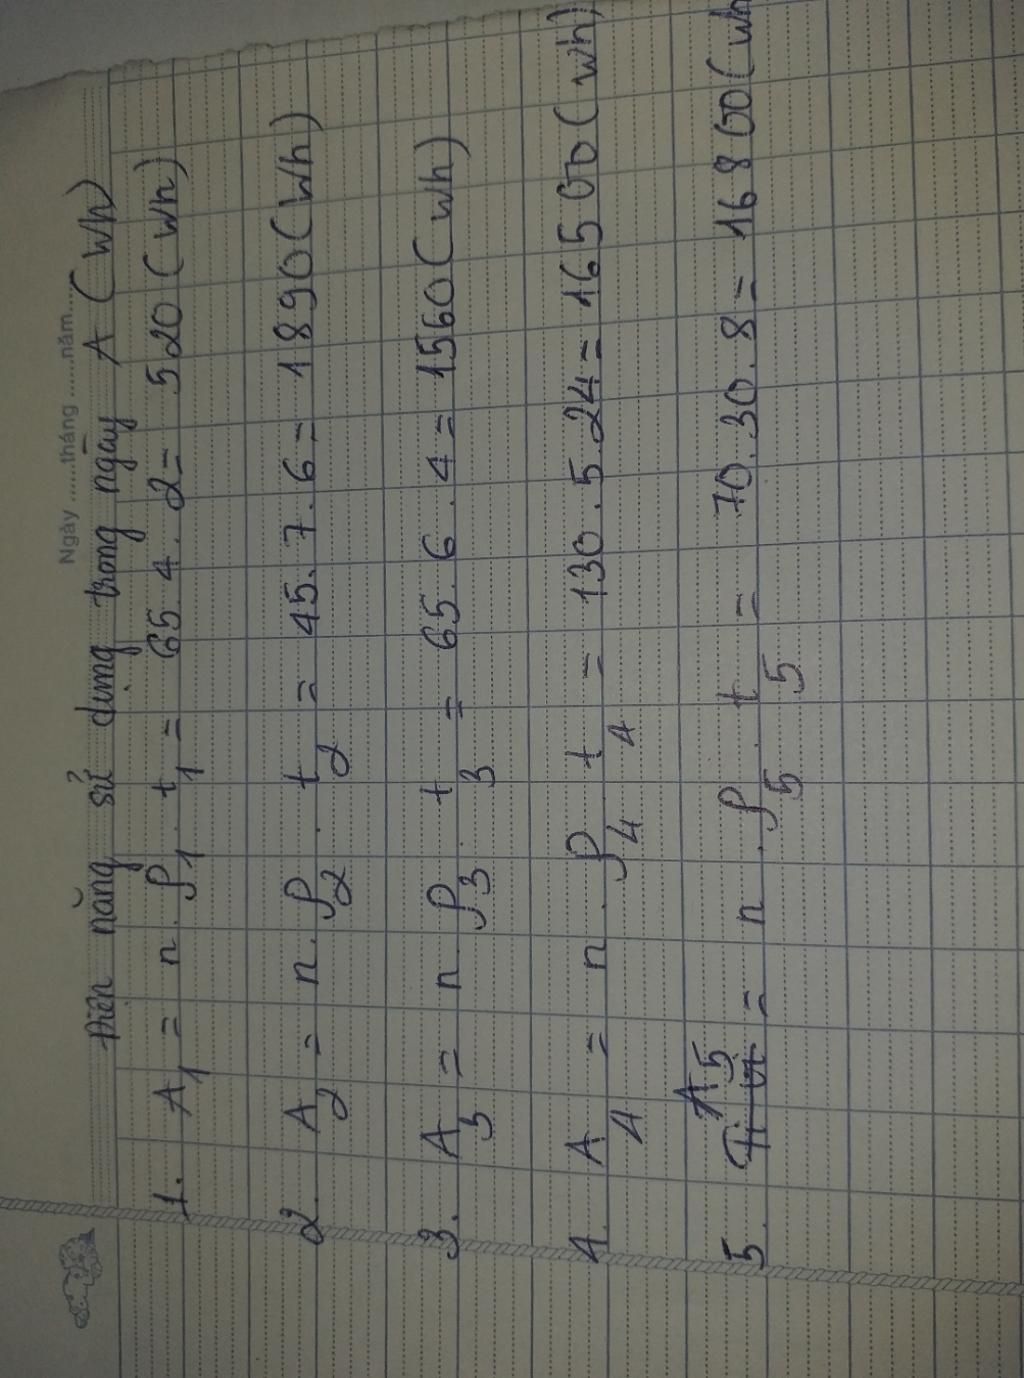 Ngày ......tháng ......năm......
Điện năng sử dụng trong ngày A (Wh)
1. A1 = n . P1 . t1 = 65 . 4 . 2 = 520 (Wh)
2. A2 = n . P2 . t2 = 45 . 7 . 6 = 1890 (Wh)
3. A3 = n . P3 . t3 = 65 . 6 . 4 = 1560 (Wh)
4. A4 = n . P4 . t4 = 130 . 5 . 24 = 16500 (Wh)
5. A5 = n . P5 . t5 = 70 . 30 . 8 = 16800 (Wh